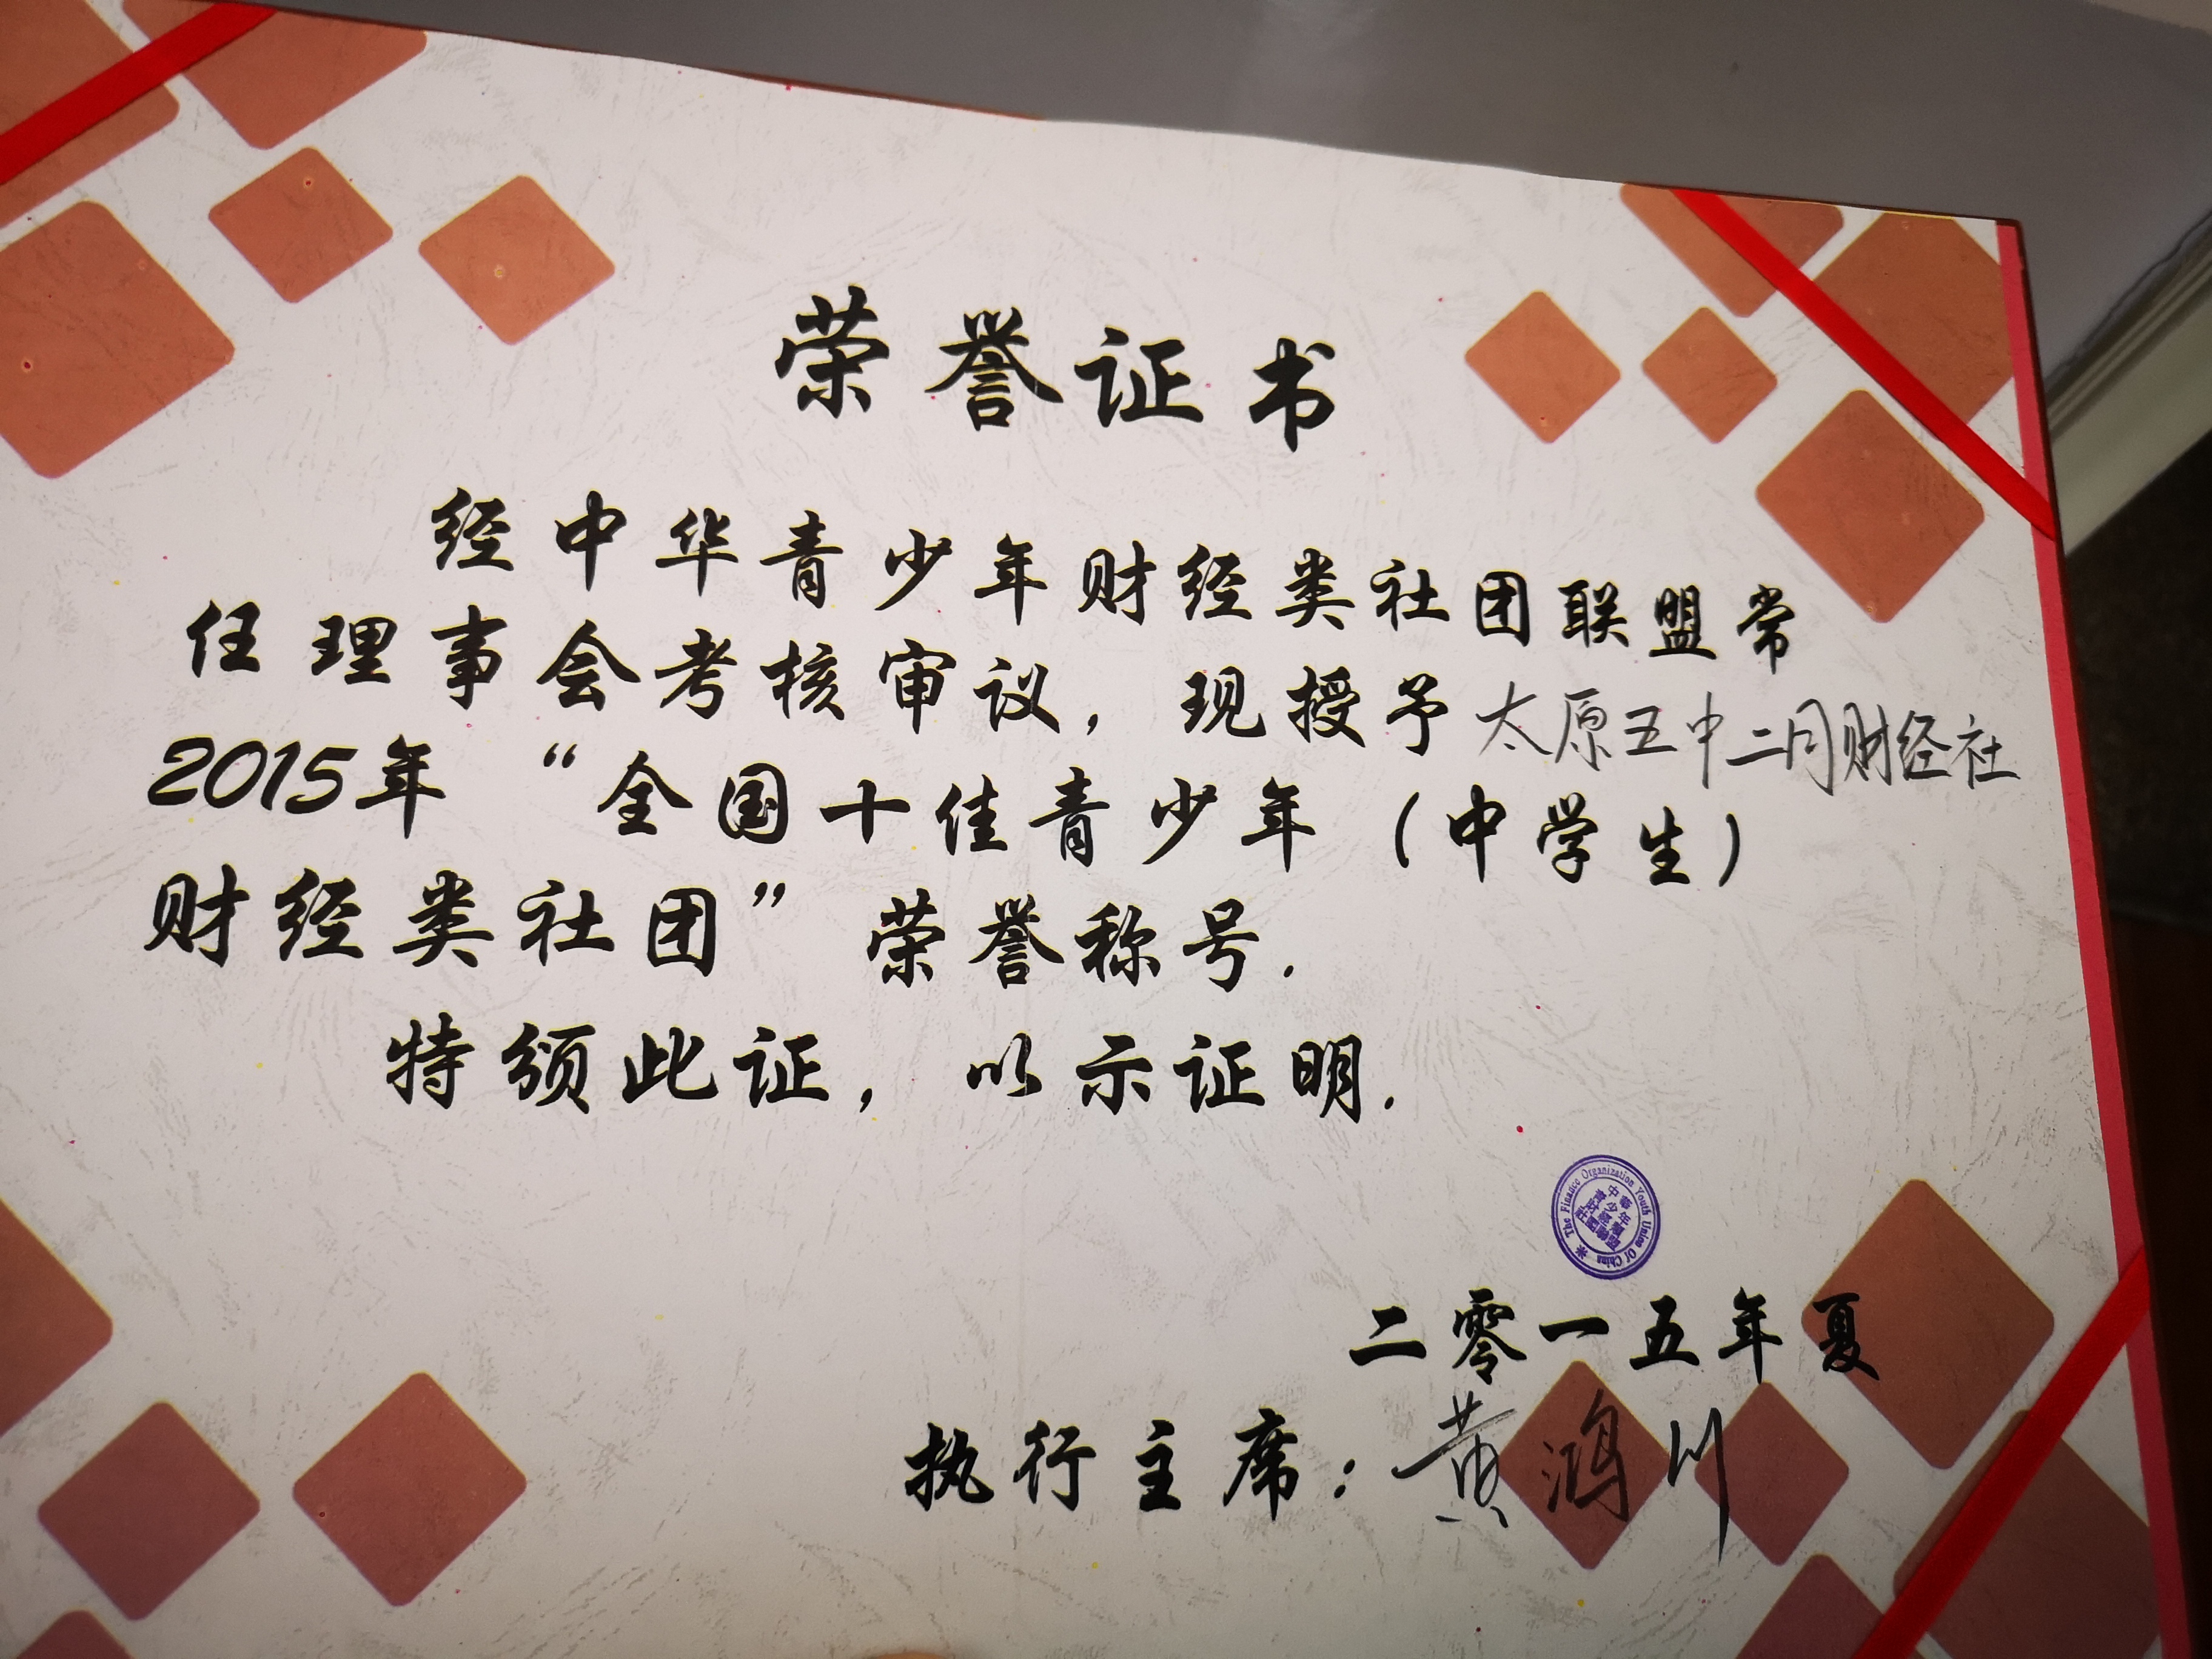 荣誉证书
经中华青少年财经类社团联盟常
任理事会考核审议，现授予太原五中二月财经社
2015年“全国十佳青少年（中学生）
财经类社团”荣誉称号.
特颁此证，以示证明.
The Finance Organization Youth Union Of China
中華
青少年
財經類
社團聯盟
二零一五年夏
执行主席：黄鸿川